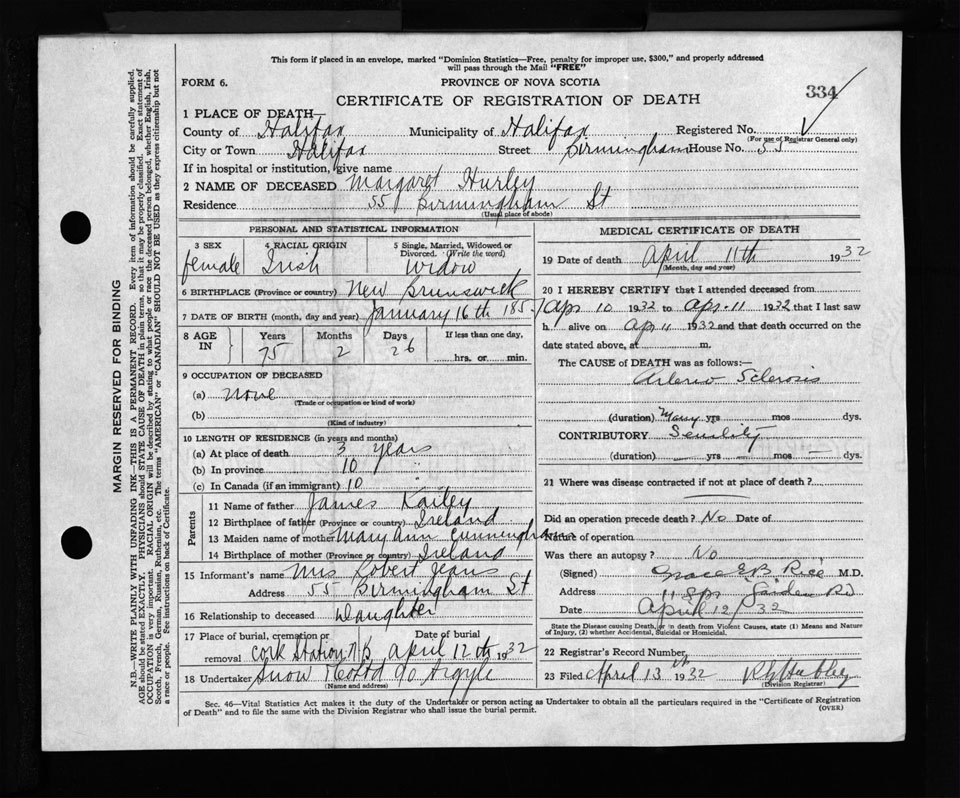 This form if placed in an envelope, marked "Dominion Statistics—Free, penalty for improper use, $300," and properly addressed
will pass through the Mail "FREE"
FORM 6.
PROVINCE OF NOVA SCOTIA
334
CERTIFICATE OF REGISTRATION OF DEATH
1 PLACE OF DEATH—
County of Halifax Municipality of Halifax Registered No.
(For use of Registrar General only)
City or Town Halifax Street Birmingham House No. 55
If in hospital or institution, give name
2 NAME OF DECEASED Margaret Hurley
Residence 55 Birmingham St
(Usual place of abode)
PERSONAL AND STATISTICAL INFORMATION
3 SEX 4 RACIAL ORIGIN 5 Single, Married, Widowed or Divorced. (Write the word)
female Irish Widow
6 BIRTHPLACE (Province or country) New Brunswick
7 DATE OF BIRTH (month, day and year) January 16th 1857
8 AGE IN Years Months Days If less than one day,
75 2 26 hrs. or min.
9 OCCUPATION OF DECEASED
(a) none
(Trade or occupation or kind of work)
(b)
(Kind of industry)
10 LENGTH OF RESIDENCE (in years and months)
(a) At place of death 3 years
(b) In province 10 "
(c) In Canada (if an immigrant) 10
Parents
11 Name of father James Kailey
12 Birthplace of father (Province or country) Ireland
13 Maiden name of mother Mary Ann Cunningham
14 Birthplace of mother (Province or country) Ireland
15 Informant's name Mrs Robert Jeans
Address 55 Birmingham St
16 Relationship to deceased Daughter
17 Place of burial, cremation or removal Cork Station N B Date of burial April 12th 1932
18 Undertaker Snow & Co Ltd 90 Argyle
(Name and address)
MEDICAL CERTIFICATE OF DEATH
19 Date of death April 11th 1932
(Month, day and year)
20 I HEREBY CERTIFY that I attended deceased from
Apr 10 1932 to Apr. 11 1932 that I last saw
h alive on Apr 11 1932 and that death occurred on
date stated above, at m.
The CAUSE of DEATH was as follows:—
Arterio Sclerosis
(duration) Many yrs mos dys.
CONTRIBUTORY Senility
(duration) — yrs — mos — dys.
21 Where was disease contracted if not at place of death?
Did an operation precede death? No Date of
Nature of operation
Was there an autopsy? No
(Signed) Grace E B Rice M.D.
Address Garden Rd
Date April 12/32
State the Disease causing Death, or in death from Violent Causes, state (1) Means and Nature
of Injury, (2) whether Accidental, Suicidal or Homicidal.
22 Registrar's Record Number
23 Filed April 13th 1932
(Division Registrar)
Sec. 46—Vital Statistics Act makes it the duty of the Undertaker or person acting as Undertaker to obtain all the particulars required in the "Certificate of Registration
of Death" and to file the same with the Division Registrar who shall issue the burial permit.
(OVER)
MARGIN RESERVED FOR BINDING
N.B.—WRITE PLAINLY WITH UNFADING INK—THIS IS A PERMANENT RECORD. Every item of information should be carefully supplied.
AGE should be stated EXACTLY. PHYSICIANS should STATE CAUSE OF DEATH in plain terms, so that it may be properly classified. Exact statement of
OCCUPATION is very important. RACIAL ORIGIN will be described by stating to what people or race the deceased person belonged, whether English, Irish,
Scotch, French, German, Russian, Ruthenian, etc. The terms "AMERICAN" or "CANADIAN" SHOULD NOT BE USED as they express citizenship but not
a race or people. See instructions on back of Certificate.